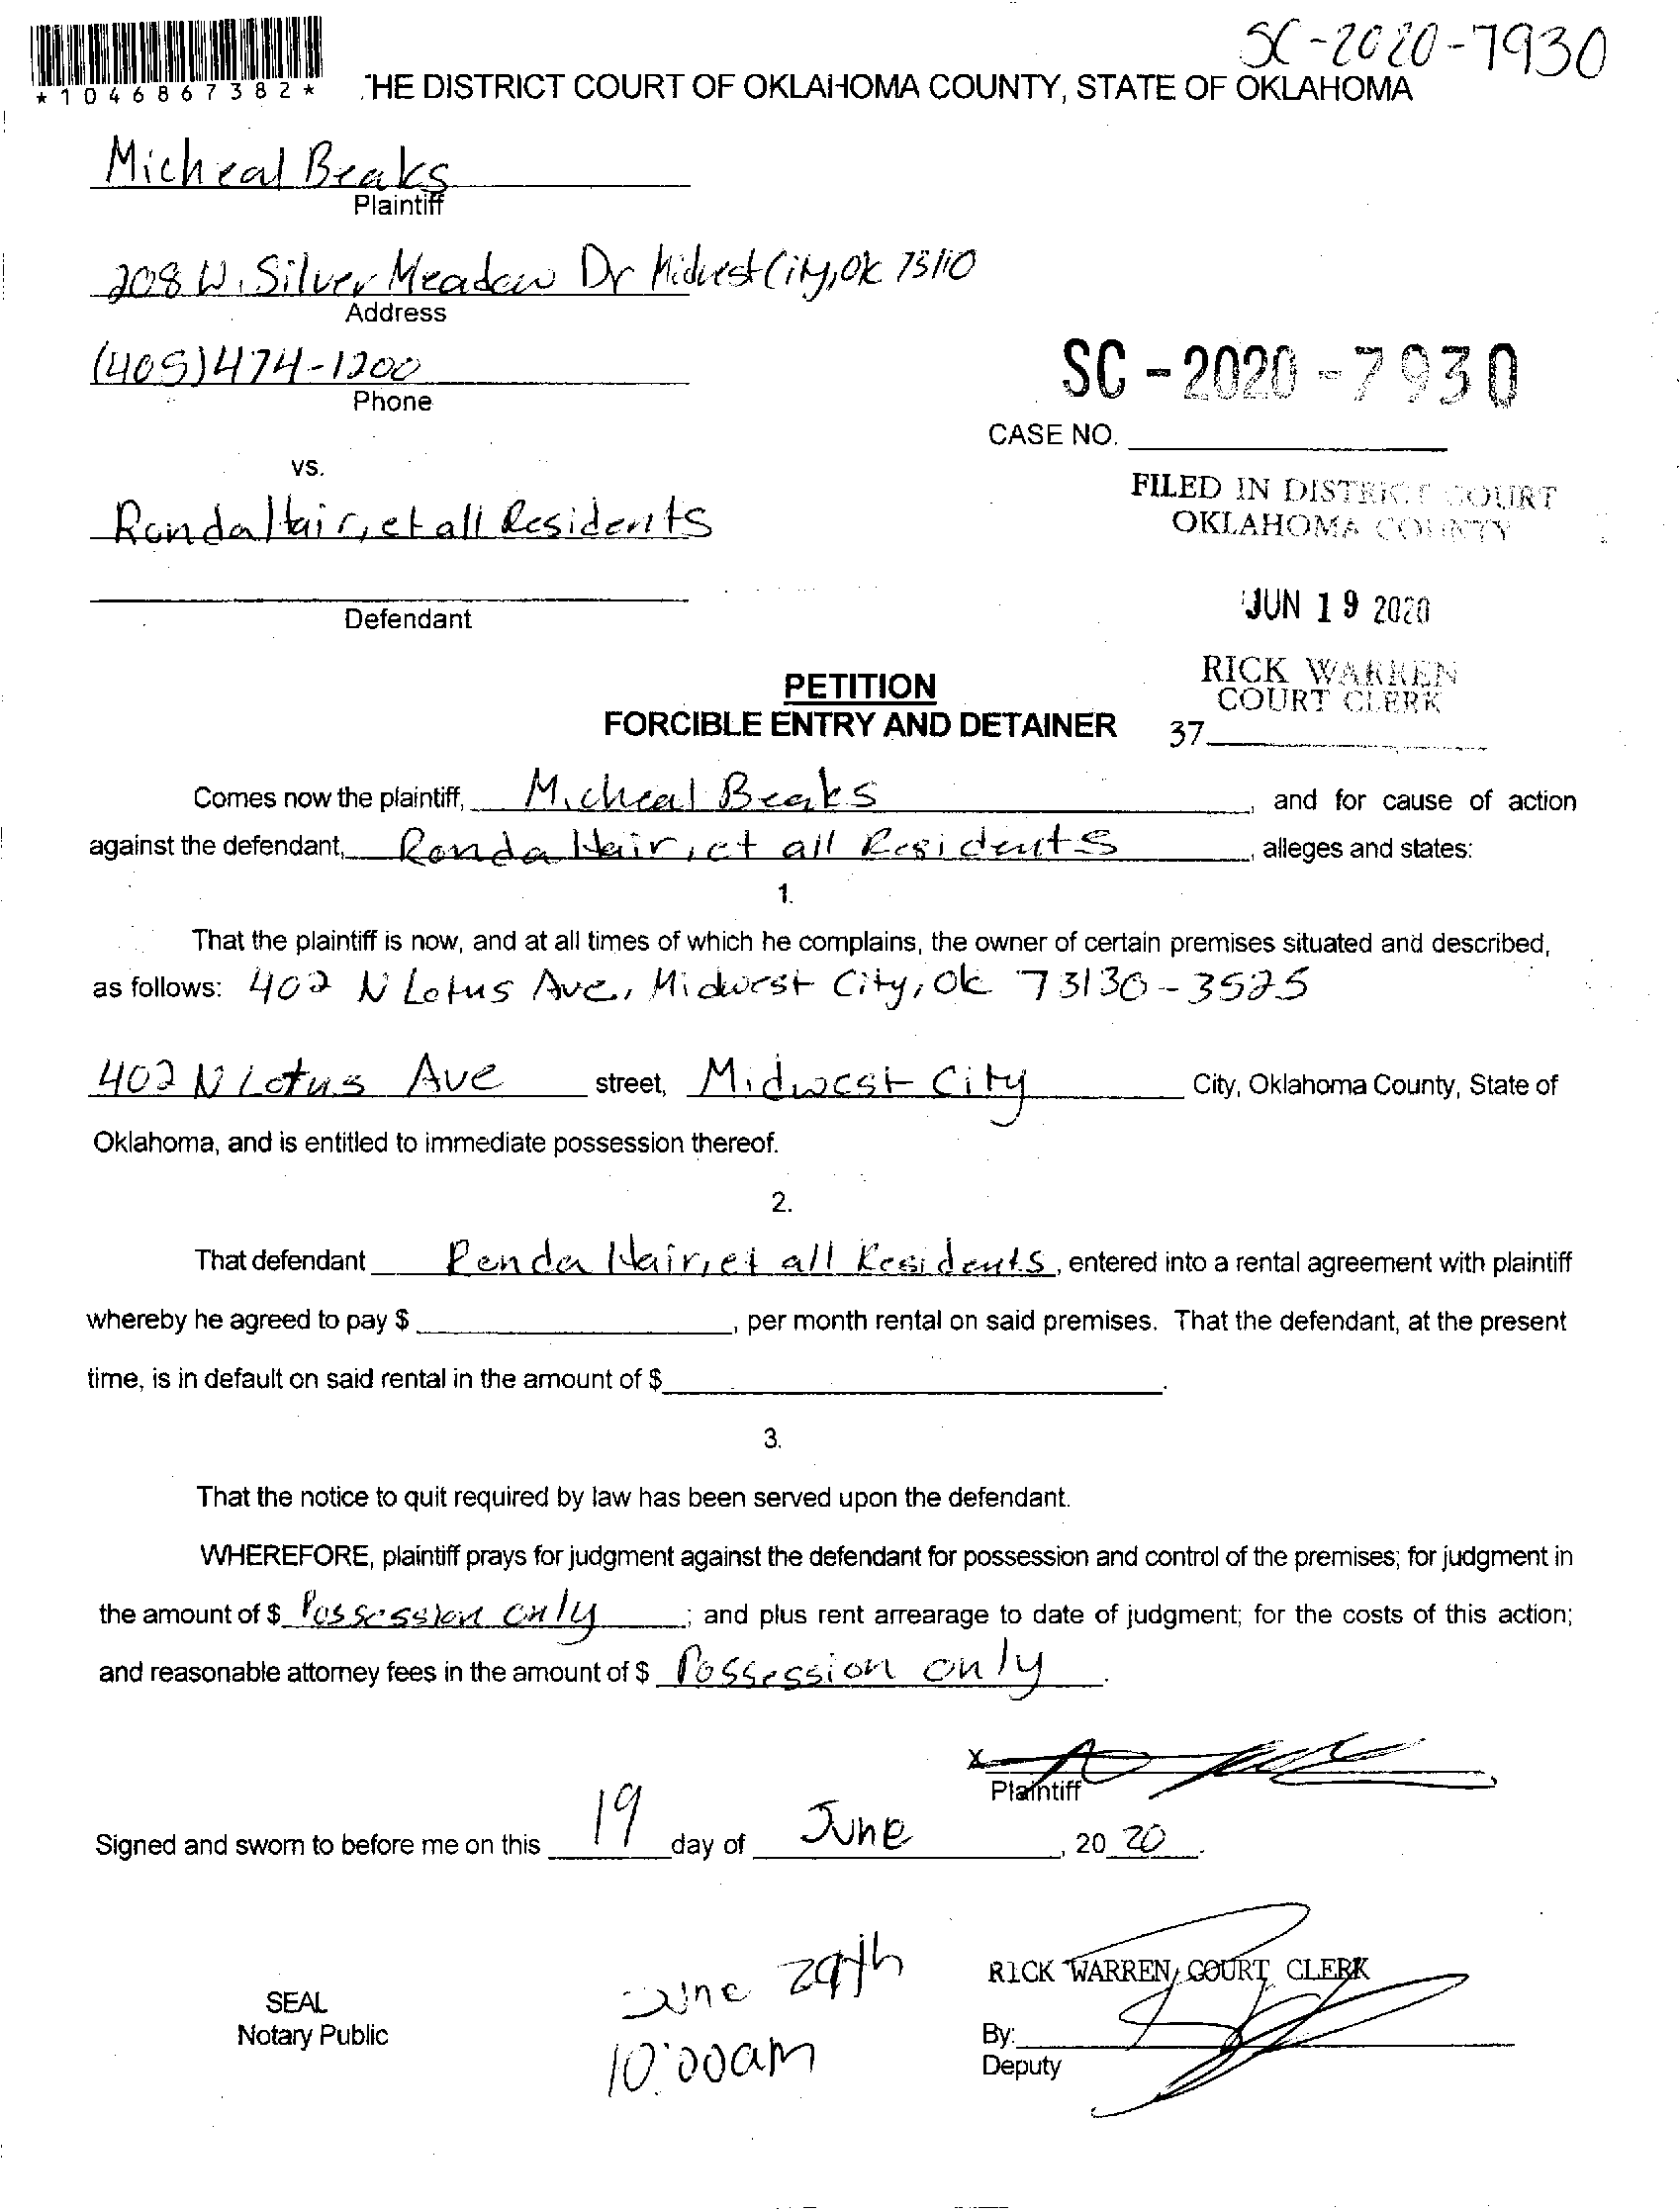 SC-2020-7930
*1046867382*
THE DISTRICT COURT OF OKLAHOMA COUNTY, STATE OF OKLAHOMA
Micheal Beaks
Plaintiff
208 W. Silver Meadow Dr Midwest City, OK 73110
Address
(405)474-1200
Phone
SC-2020-7930
CASE NO.
vs.
FILED IN DISTRICT COURT
OKLAHOMA COUNTY
Ronda Hair, et all Residents
JUN 19 2020
Defendant
RICK WARREN
COURT CLERK
37
PETITION
FORCIBLE ENTRY AND DETAINER
Comes now the plaintiff, Micheal Beaks, and for cause of action
against the defendant, Ronda Hair, et all Residents, alleges and states:
1.
That the plaintiff is now, and at all times of which he complains, the owner of certain premises situated and described,
as follows: 402 N Lotus Ave, Midwest City, Ok 73130-3525
402 N Lotus Ave street, Midwest City City, Oklahoma County, State of
Oklahoma, and is entitled to immediate possession thereof.
2.
That defendant Ronda Hair, et all Residents, entered into a rental agreement with plaintiff
whereby he agreed to pay $ , per month rental on said premises. That the defendant, at the present
time, is in default on said rental in the amount of $ .
3.
That the notice to quit required by law has been served upon the defendant.
WHEREFORE, plaintiff prays for judgment against the defendant for possession and control of the premises; for judgment in
the amount of $ Possession only; and plus rent arrearage to date of judgment; for the costs of this action;
and reasonable attorney fees in the amount of $ Possession only.
X
Plaintiff
Signed and sworn to before me on this 19 day of June, 20 20.
June 29th
10:00am
SEAL
Notary Public
RICK WARREN, COURT CLERK
By:
Deputy